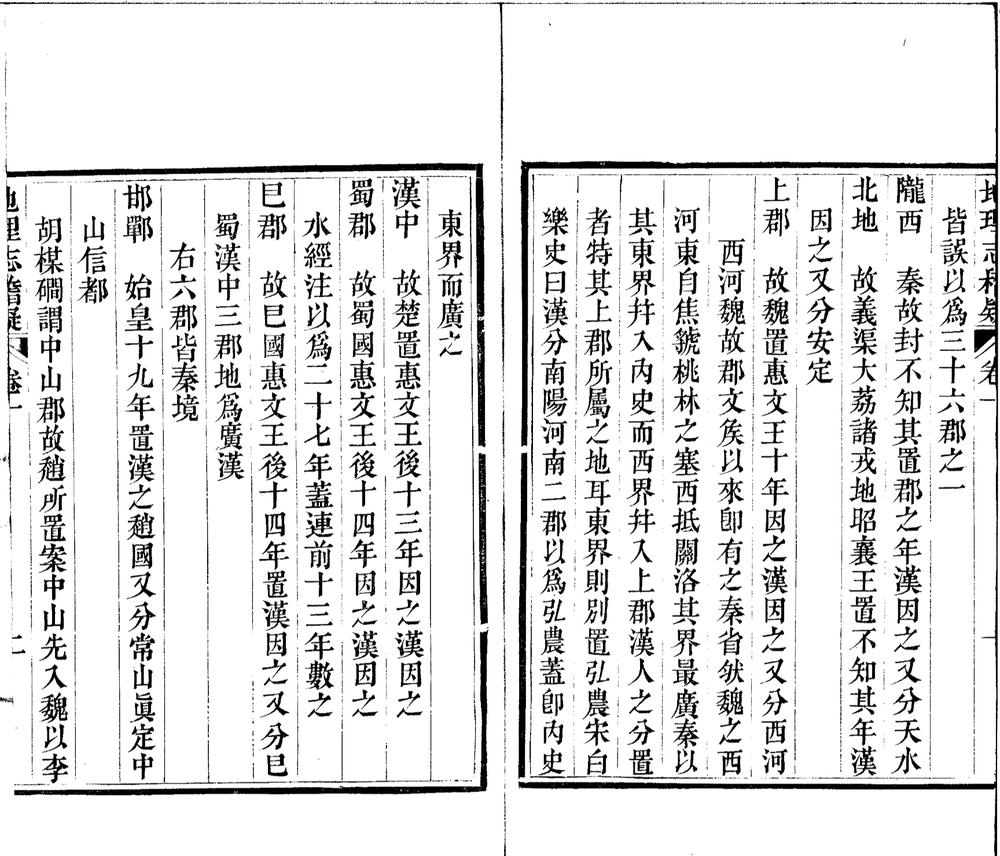 地理志稽疑 卷一
皆誤以爲三十六郡之一
隴西　秦故封不知其置郡之年漢因之又分天水
北地　故義渠大荔諸戎地昭襄王置不知其年漢
因之又分安定
上郡　故魏置惠文王十年因之漢因之又分西河
西河魏故郡文矦以來卽有之秦省狀魏之西
河東自焦虢桃林之塞西抵關洛其界最廣秦以
其東界幷入內史而西界幷入上郡漢人之分置
者特其上郡所屬之地耳東界則別置弘農宋白
樂史曰漢分南陽河南二郡以爲弘農蓋卽內史
東界而廣之
漢中　故楚置惠文王後十三年因之漢因之
蜀郡　故蜀國惠文王後十四年因之漢因之
水經注以爲二十七年蓋連前十三年數之
巴郡　故巴國惠文王後十四年置漢因之又分巴
蜀漢中三郡地爲廣漢
右六郡皆秦境
邯鄲　始皇十九年置漢之趙國又分常山眞定中
山信都
胡楳磵謂中山郡故趙所置案中山先入魏以李
地理志稽疑 卷一 二